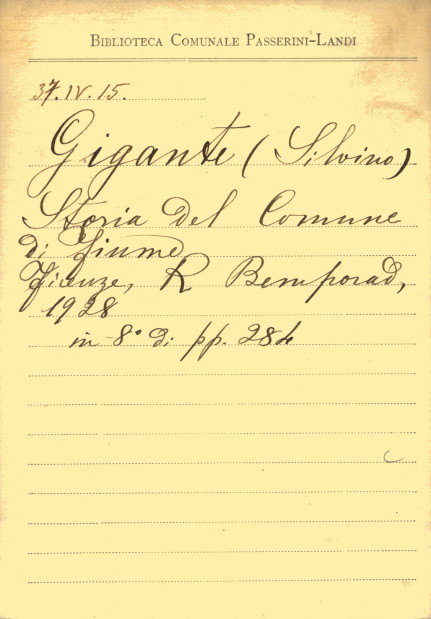 BIBLIOTECA COMUNALE PASSERINI-LANDI
37.IV.15.
Gigante (Silvino)
Storia del Comune
di Fiume
Firenze, R Bemporad,
1928
in 8° di pp. 284